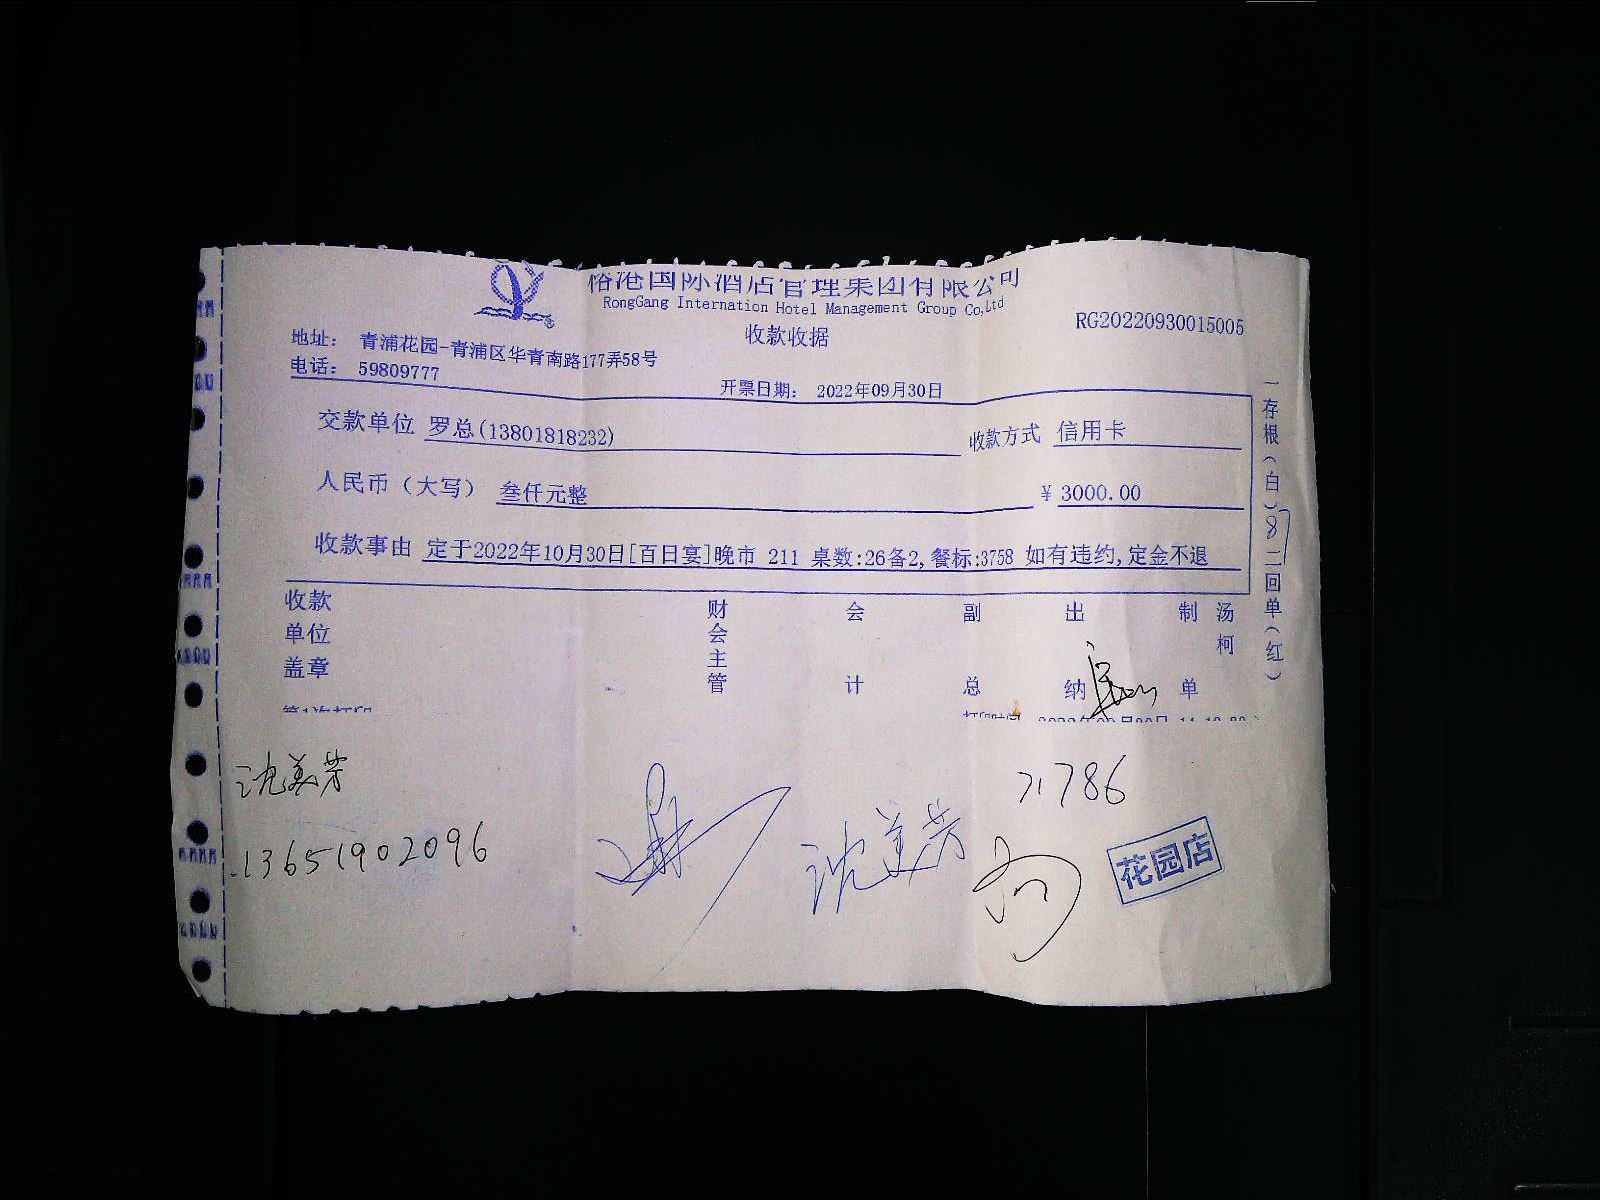 国际酒店管理集团有限公司
RongGang Internation Hotel Management Group Co,Ltd
RG20220930015005
收款收据
地址： 青浦花园-青浦区华青南路177弄58号
电话： 59809777
开票日期： 2022年09月30日
交款单位 罗总(13801818232)
收款方式 信用卡
人民币（大写） 叁仟元整
¥ 3000.00
收款事由 定于2022年10月30日[百日宴]晚市 211 桌数:26备2,餐标:3758 如有违约,定金不退
一存根（白）
87
二回单（红）
收款单位盖章
财会主管
会计
副总
出纳
制单
汤柯
第1次打印
打印时间
沈美芳
13651902096
沈美芳
71786
花园店